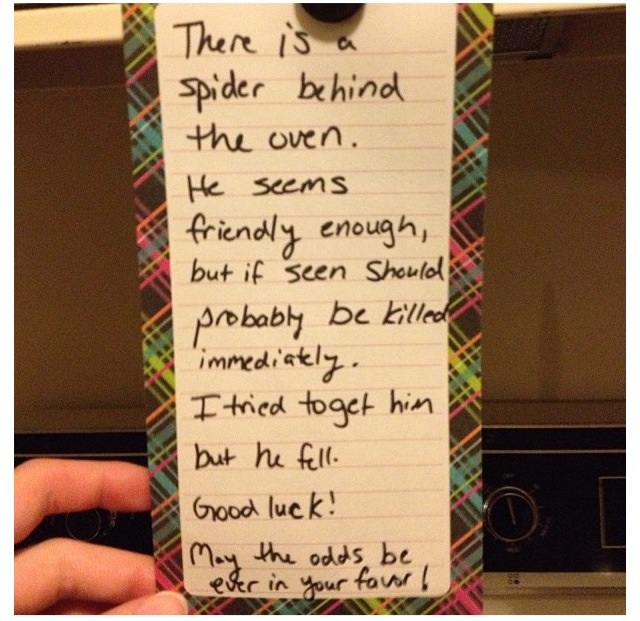 There is a
spider behind
the oven.
He seems
friendly enough,
but if seen Should
probably be killed
immediately.
I tried to get him
but he fell.
Good luck!
May the odds be
ever in your favor!